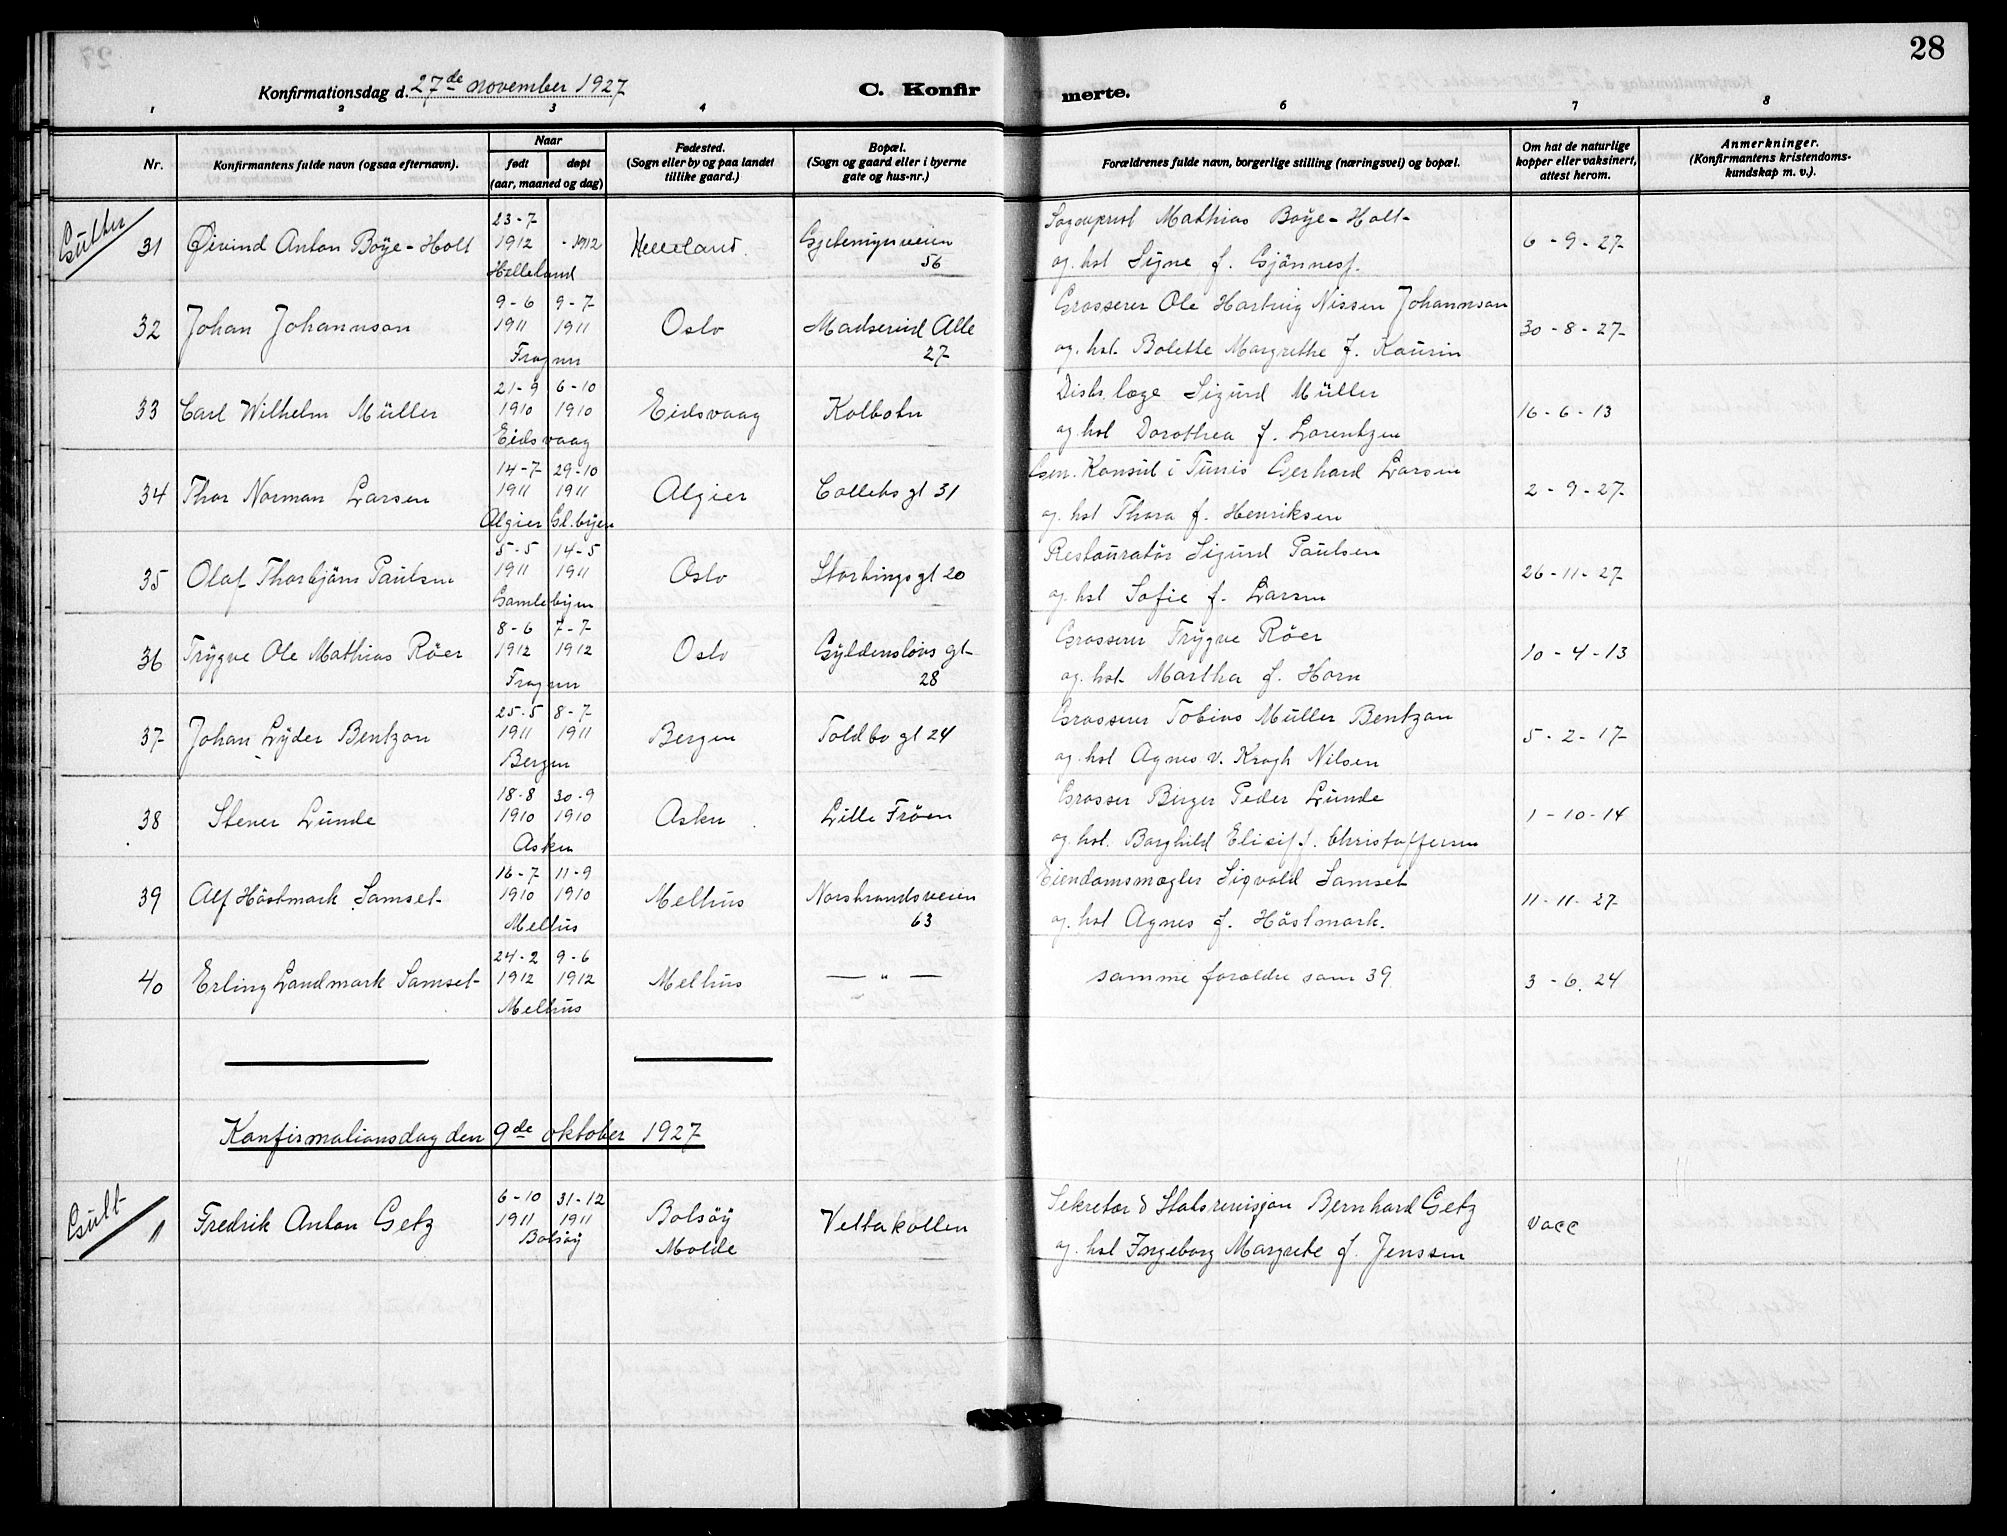 28
Konfirmationsdag d. 27de november 1927
C. Konfir
merte.
1 2 3 4 6 7 8
Nr.
Konfirmantens fulde navn (ogsaa efternavn).
Naar
født
døpt
(aar, maaned og dag)
Fødested.
(Sogn eller by og paa landet
tillike gaard.)
Bopæl.
(Sogn og gaard eller i byerne
gate og hus-nr.)
Forældrenes fulde navn, borgerlige stilling (næringsvei) og bopæl.
Om hat de naturlige
kopper eller vaksinert,
attest herom.
Anmerkninger.
(Konfirmantens kristendoms-
kundskap m. v.).
Gutter
31 Øivind Anton Boye-Holt 23-7 1912 - 1912 Helleland Helleland. 56
Sogneprest Mathias Boye-Holt
og hst Signe f. 6-9-27
32 Johan Johannson 9-6 1911 9-7 1911 Frogner Oslo Madserud Alle 27
Grosserer Ole Hartvig Nissen Johannson
og. hst. Bolette Margrethe f. Kaurin 30-8-27
33 Carl Wilhelm Müller 21-9 1910 6-10 1910 Eidsvaag Eidsvaag Kolbotn
Distr. læge Sigurd Müller
og hst Dorothea f. Lorentzen 16-6-13
34 Thor Norman Larsen 14-7 1911 29-10 1911 Algier Gl.byen Algier Colletts gt 31
Gen. Konsul i Tunis Gerhard Larsen
og. hst Thora f. Henriksen 2-9-27
35 Olaf Thorbjörn Paulsen 5-5 1911 14-5 1911 Gamlebyen Oslo Stortings gt 20
Restauratör Sigurd Paulsen
og. hst Sofie f. Larsen 26-11-27
36 Trygve Ole Mathias Röer 8-6 1912 7-7 1912 Frogner Oslo Gyldenlövs gt 28
Grosserer Trygve Röer
og. hst. Martha f. Horn 10-4-13
37 Johan Lyder Bentzon 25-5 1911 8-7 1911 Bergen Bergen Toldbo gt 24
Grosserer Tobias Müller Bentzon
og. hst Agnes v. Krogh Nilsen 5-2-17
38 Stener Lunde 18-8 1910 30-9 1910 Asker Asker Lille Fröen
Grosser Birger Peder Lunde
og. hst. Borghild Elisif f. Christoffersen 1-10-14
39 Alf Höstmark Samset 16-7 1910 11-9 1910 Melhus Melhus Norstrandsveien 63
Eiendomsmægler Sigvald Samset
og. hst Agnes f. Höstmark. 11-11-27
40 Erling Landmark Samset 24-2 1912 9-6 1912 Melhus Melhus — " —
samme forældre som 39 3-6.24
Konfirmationsdag den 9de oktober 1927
Gutt
1 Fredrik Anton Getz 6-10 1911 31-12 1911 Bolsöy Bolsöy Molde Vettakollen
Sekretær i Statsrevisjon Bernhard Getz
og. hst Ingeborg Margrete f. Jenssen vacc